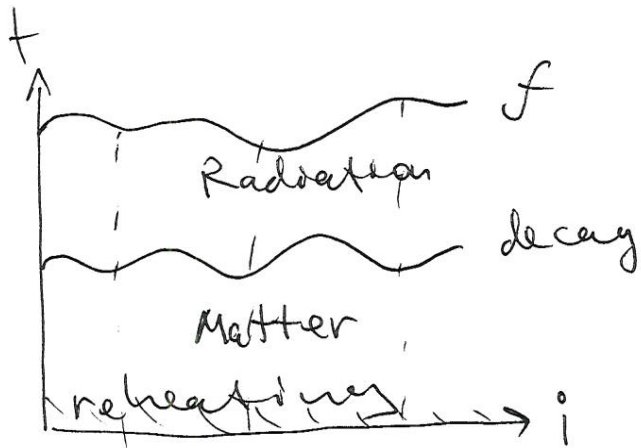 t
f
Radiation
decay
Matter
reheating
i